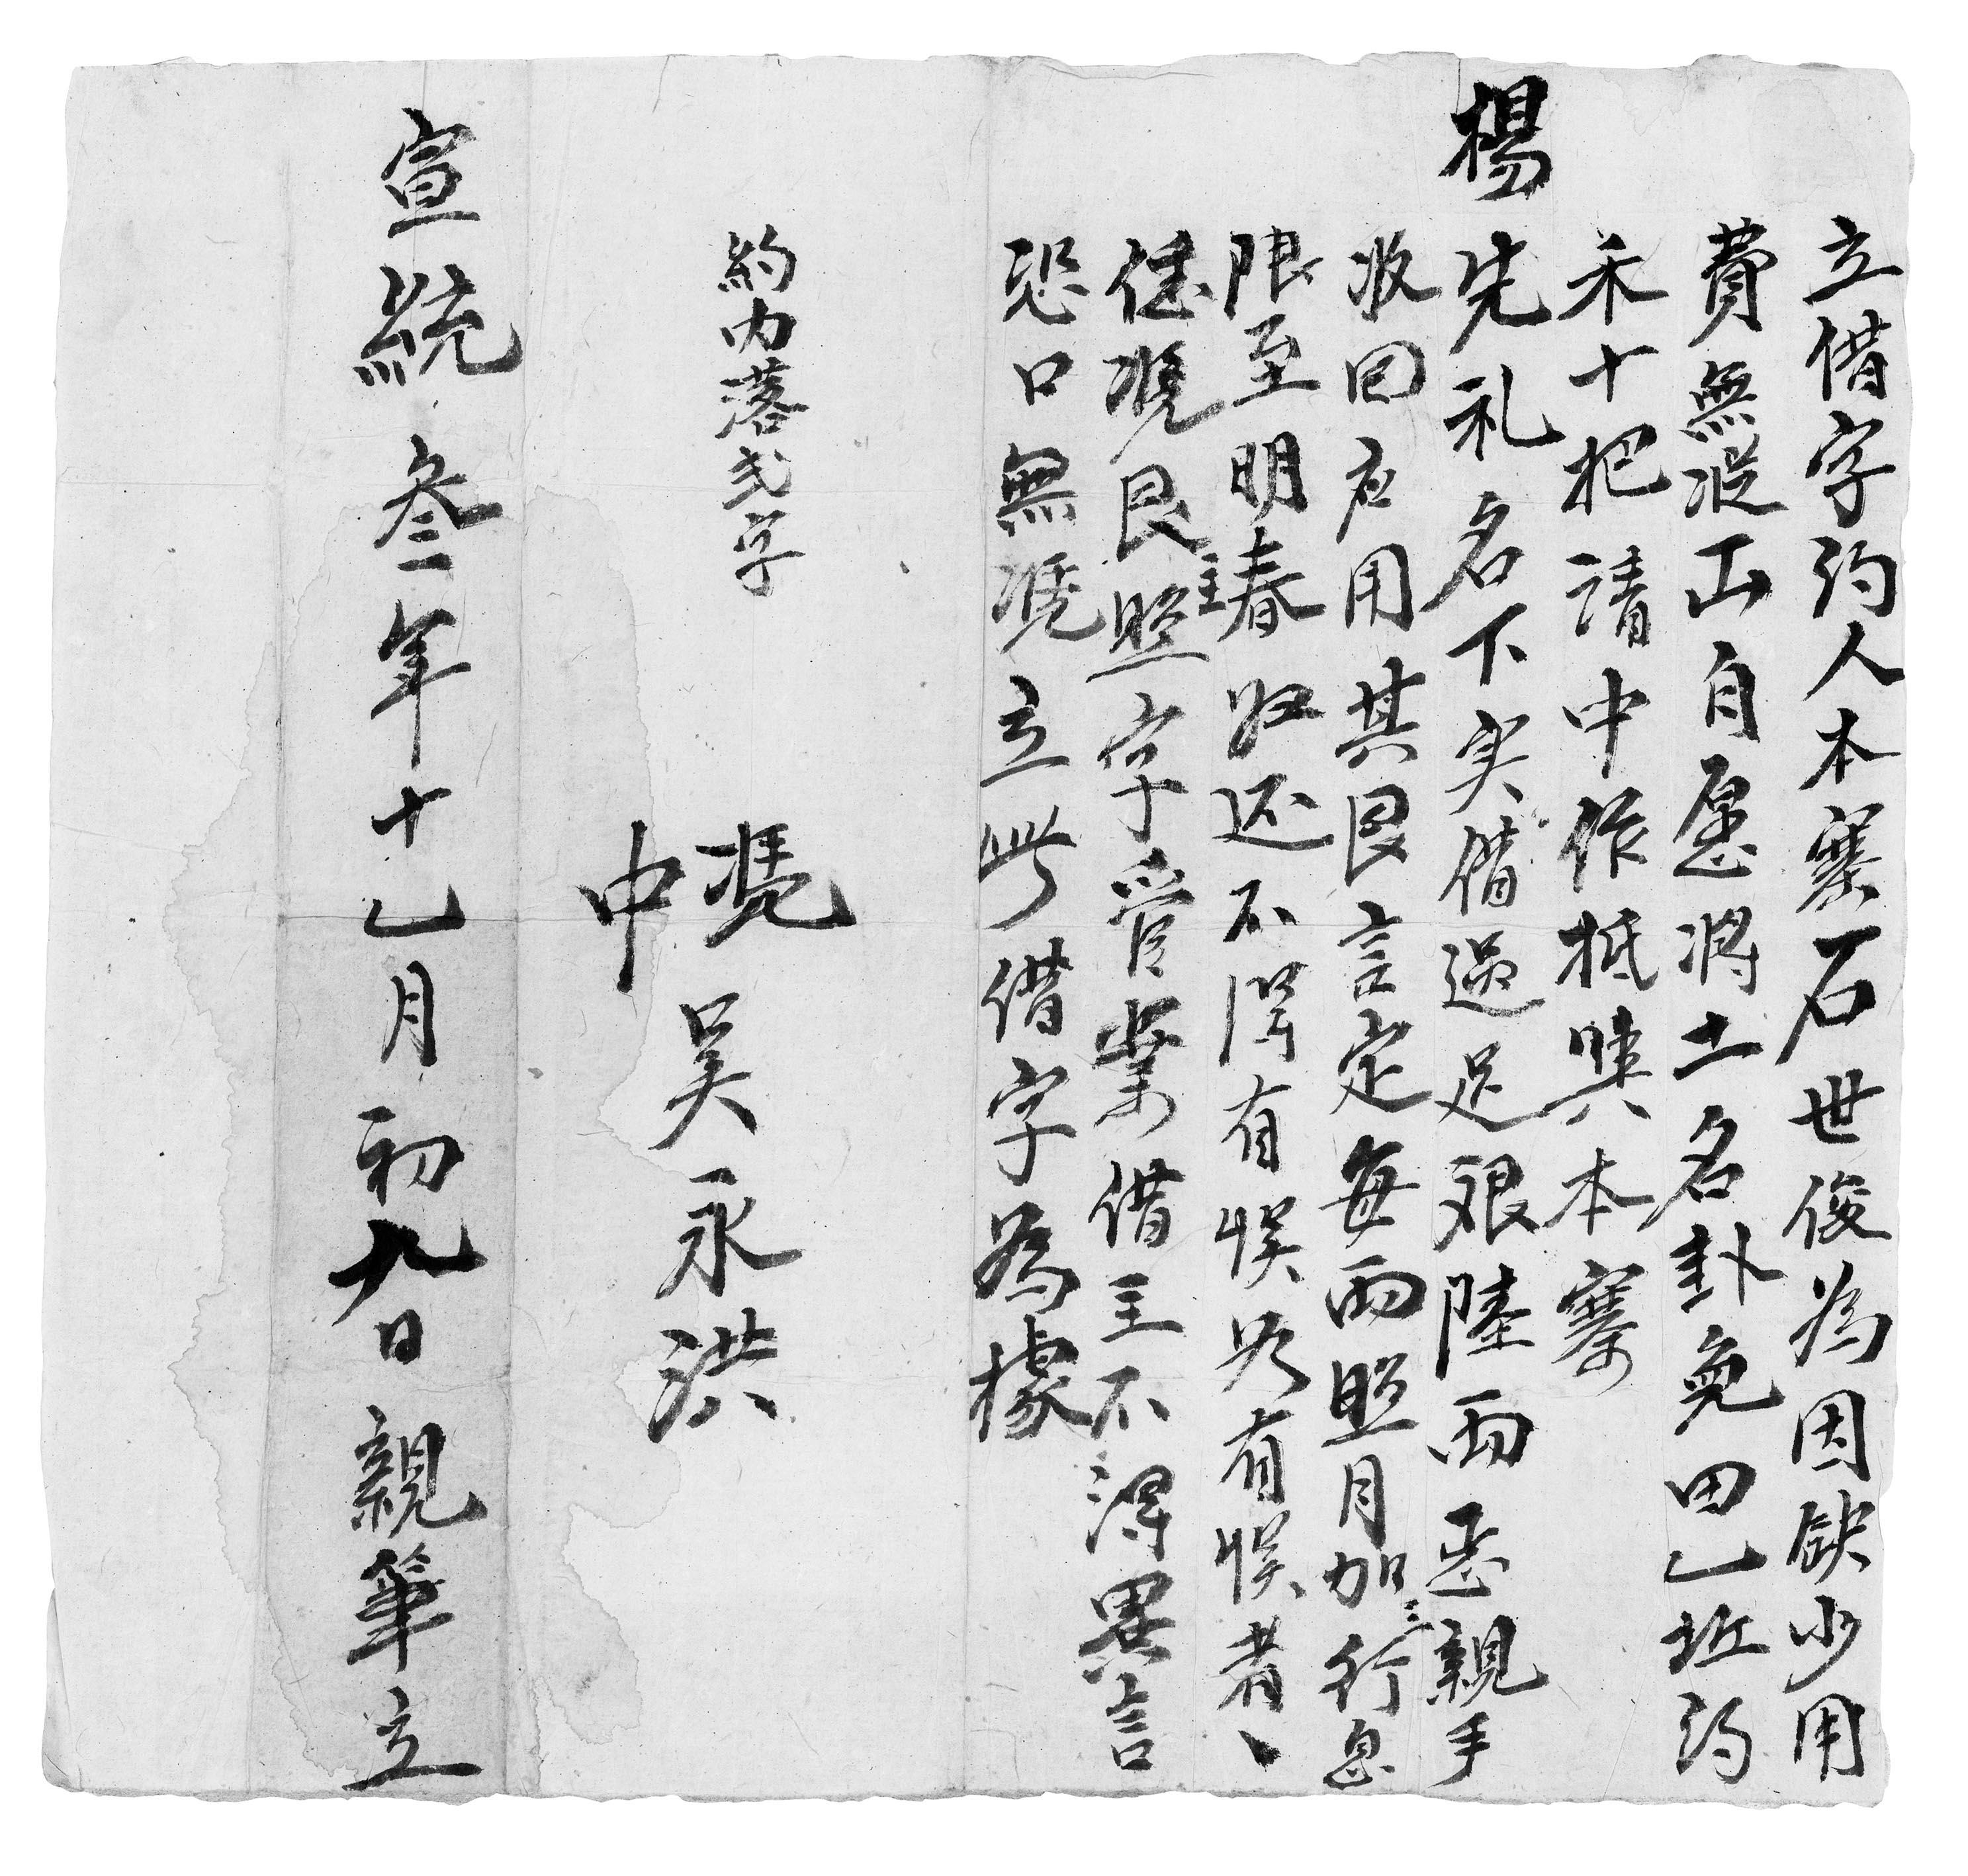 立借字约人本寨石世俊为因缺少用
費無従正自愿将土名卦兔田乙坵约
禾十把請中作抵典本寨
楊先礼名下実借過足艰陸両正親手
收回应用其艮言定每両照月加三行息
限至明春归还不得有悮若有悮者
任凴艮主照字管業借主不得異言
恐口無凴立此借字為據
約内落弍字
凴中吴永洪
宣統叁年十乙月初九日親筆立